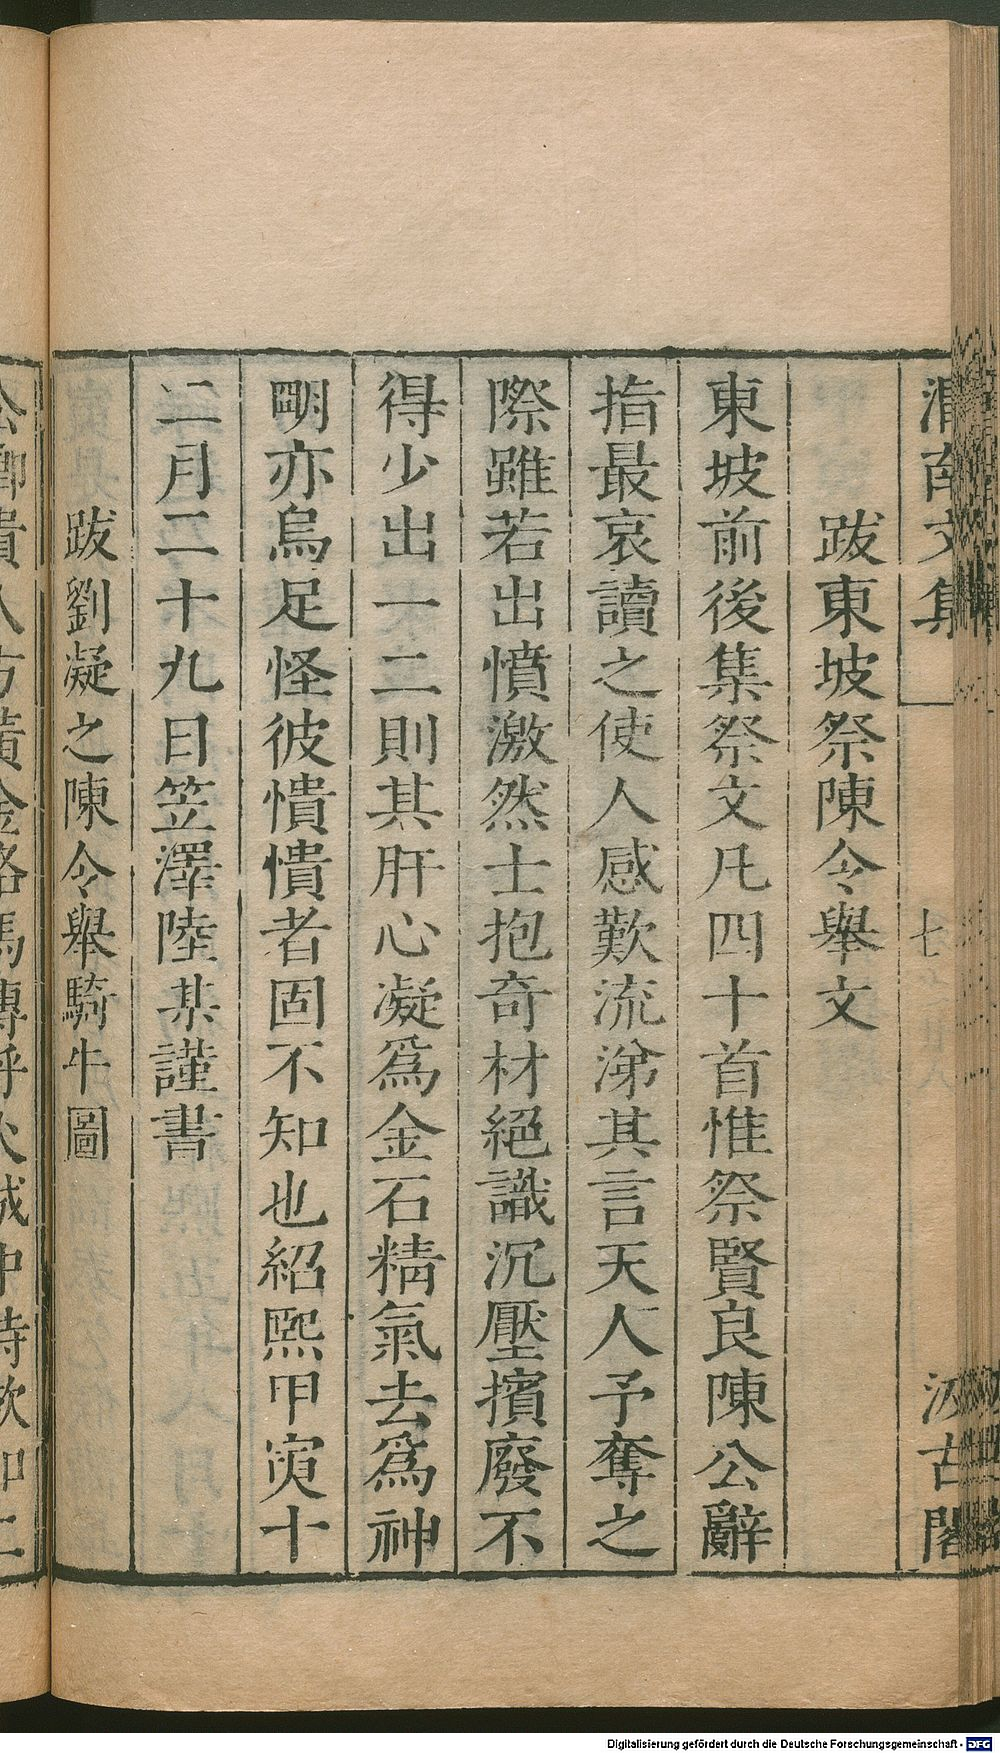 渭南文集
七
汲古閣
跋東坡祭陳令舉文
東坡前後集祭文凡四十首惟祭賢良陳公辭
指最哀讀之使人感歎流涕其言天人予奪之
際雖若出憤激然士抱奇材絕識沉壓擯廢不
得少出一二則其肝心凝爲金石精氣去爲神
明亦烏足怪彼憒憒者固不知也紹熙甲寅十
二月二十九日笠澤陸某謹書
跋劉凝之陳令舉騎牛圖
Digitalisierung gefördert durch die Deutsche Forschungsgemeinschaft - DFG